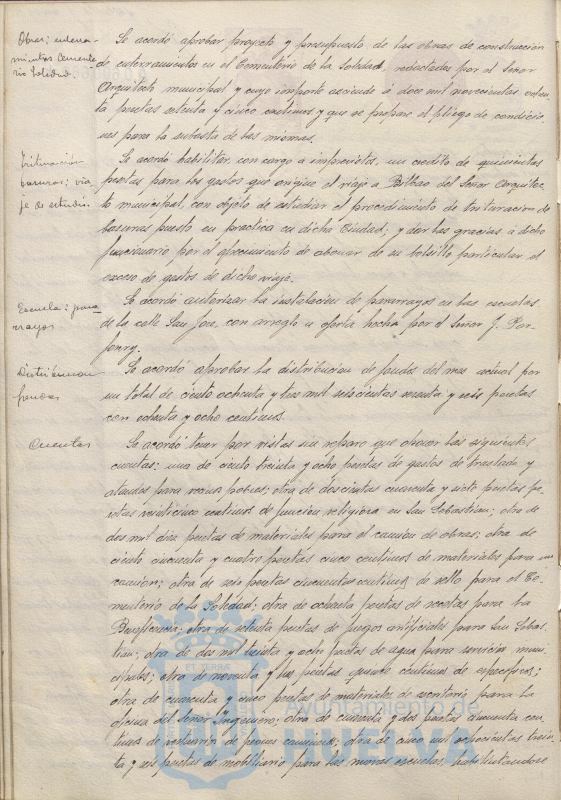 Obras; enterra-
mientos Cemente-
rio Soledad.
Se acordó aprobar proyecto y presupuesto de las obras de construcción
de enterramientos en el Cementerio de la Soledad, redactados por el Señor
Arquitecto municipal y cuyo importe asciende á doce mil novecientas
ta pesetas setenta y cinco centimos y que se prepare el pliego de condicio-
nes para la subasta de las mismas.
Trituración
basuras; via-
je de estudio.
Se acordó habilitar con cargo a imprevistos, un credito de quinientas
pesetas para los gastos que origine el viaje a Bilbao del Señor Arquitec-
to municipal, con objeto de estudiar el procedimiento de trituración de
basuras puesto en practica en dicha Ciudad; y dar las gracias á dicho
funcionario por el ofrecimiento de abonar de su bolsillo particular el
exceso de gastos de dicho viaje.
Escuela; para-
rrayos
Se acordó autorizar la instalación de pararrayos en las escuelas
de la calle San José, con arreglo a oferta hecha por el Señor J.
Distribución
fondos
Se acordó aprobar la distribución de fondos del mes actual por
un total de ciento ochenta y tres mil seiscientas y seis pesetas
con ochenta y ocho centimos.
Cuentas
Se acordó tener por vistas sin reparo que ofrecer las siguientes
cuentas: una de ciento treinta y ocho pesetas de gastos de traslado y
ataudes para pobres; otra de doscientas cuarenta y siete pesetas
veinticinco centimos de función religiosa en San Sebastian; otra de
dos mil diez pesetas de materiales para el camión de obras; otra de
ciento cincuenta y cuatro pesetas cinco centimos de materiales para un
camión; otra de seis pesetas cincuenta centimos de sello para el Ce-
menterio de la Soledad; otra de ochenta pesetas de recetas para la
Beneficencia; otra de setenta pesetas de fuegos artificiales para San Sebas-
tian; otra de dos mil y ocho pesetas de agua para servicios muni-
cipales; otra de noventa y tres pesetas quince centimos de especificos;
otra de cuarenta y cinco pesetas de materiales de escritorio para la
oficina del Señor Ingeniero; otra de cuarenta y dos pesetas cincuenta cen-
timos de vestuario de peones camineros; otra de cinco mil ochocientas trein-
ta y seis pesetas de mobiliario para las nuevas escuelas, habilitandose
ET TERRÆ
Ayuntamiento de
HUELVA